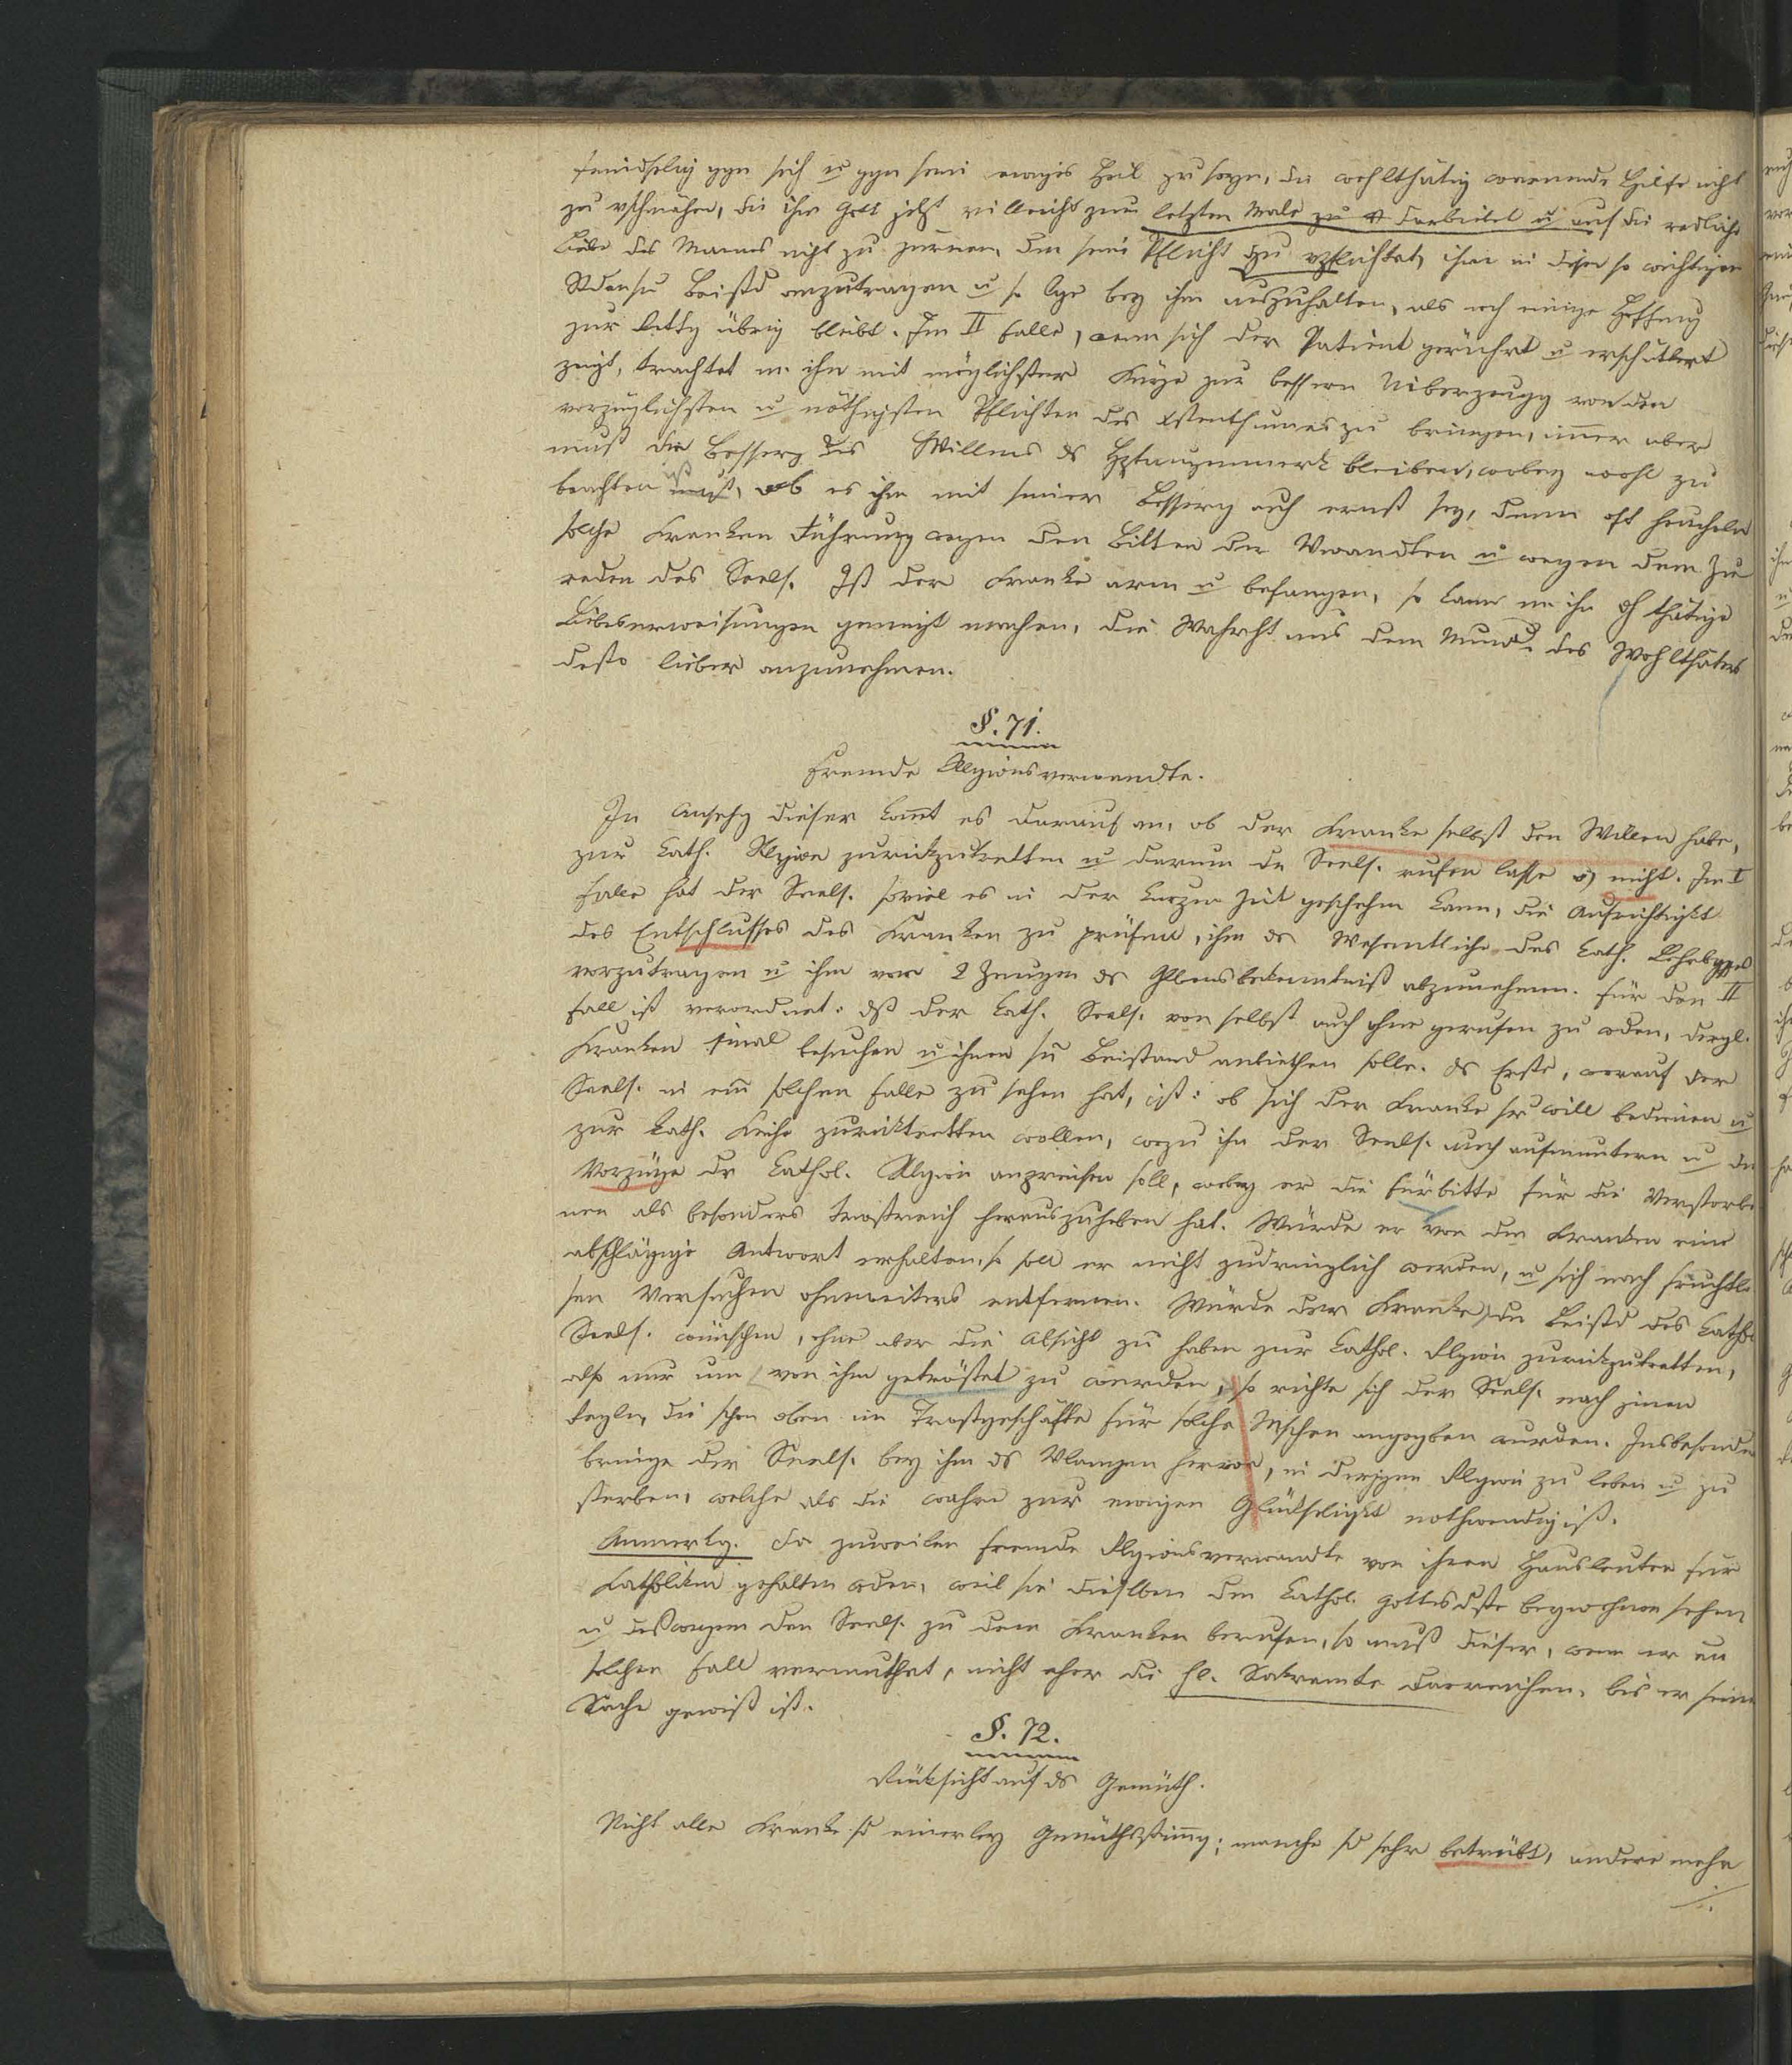 feindselig ggn sich u ggn sein ewiges Heil zu seyn, die wohlthätig warnende Hilfe nicht
zu vschmähen, die ihm Gott jetzt villeicht zum letzten Male zu darbietet u auf die redliche
Liebe des Mannes nicht zu zürnen, den seine Pflicht dzu vpflichtet, ihm in diesen so wichtigen
Beistd anzutragen u so lge bey ihm auszuhalten, als noch einige Hoffnung
zur Rettg übrig bleibt. Im II Falle, wenn sich der Patient gerührt u erschüttert
zeigt, trachtet m. ihn mit möglichster Kürze zur bessern Uiberzeugg von den
vorzüglichsten u nöthigsten Pflichten des Xstenthumes zu bringen, immer aber
muß die Besserg des Willens ds Hptaugenmerk bleiben, wobey wohl zu
beachten ist, ob es ihm mit seiner Besserg auch ernst sey, denn oft heucheln
solche Kranken Rührung wegen den Bitten der Vwandten u wegen dem Zu
reden des Seels. Ist der Kranke arm u befangen, so kann m ihn dch thätige
Liebeserweisungen geneigt machen, die Wahrht aus dem Munde des Wohlthäters
desto lieber anzunehmen.
§. 71.
Fremde Religionsverwandte.
In Ansehg dieser kommt es darauf an, ob der Kranke selbst den Willen habe,
zur kath. Rlgion zurückzutretten u darum dn Seels. rufen lasse o) nicht. Im I
Falle hat der Seels. soviel es in der kurzen Zeit geschehen kann, die Aufrichtigkt
des Entschlusses des Kranken zu prüfen, ihm ds Wesentliche des kath. Lehrbggfes
vorzutragen u ihm vor 2 Zeugen ds Glbensbekenntniß abzunehmen. Für den II
Fall ist verordnet: dß der kath. Seels. von selbst auch ohne gerufen zu wden, dergl.
Kranken 1mal besuchen u ihnen sn Beistand anbiethen solle. ds Erste, worauf der
Seels. in einem solchen Falle zu sehen hat, ist: ob sich der Kranke sr will bedienen u
zur kath. Kirche zurücktretten wollen, wozu ihn der Seels. auch aufmuntern u die
Vorzüge dr kathol. Rlgion anpreisen soll, wobey er die Fürbitte für die Verstorbe
nen als besonders trostreich herauszuheben hat. Würde er von dem Kranken eine
abschlägige Antwort erhalten, so soll er nicht zudringlich werden, u sich nach fruchtlo
sen Versuchen ohneweiters entfernen. Würde der Kranke dn Beistd des kathol
Seels. wünschen, ohne aber die Absicht zu haben zur kathol. Rlgion zurückzutretten,
also nur um von ihm getröstet zu werden, so richte sich der Seels. nach jenen
Regeln, die schon oben im Trostgeschäfte für solche Mschen angegeben wurden. Insbesondere
bringe der Seels. bey ihm ds Vlangen hervor, in derjgen Rlgion zu leben u zu
sterben, welche als die wahre zur ewigen Glückseligkt nothwendig ist.
Anmerkg. Da zuweilen fremde Rlgionsverwandte von ihren Hausleuten für
Katholiken gehalten wden, weil sie dieselben dem kathol. Gottesdste beywohnen sehen
u deßwegen den Seels. zu dem Kranken berufen, so muß dieser, wenn er en
solchen Fall vermuthet, nicht eher die hl. Sakramte darreichen, bis er seiner
Sache gewiß ist.
§. 72.
Rücksicht auf ds Gemüth.
Nicht alle Kranke sd einerley Gemüthsstimmg; manche sd sehr betrübt, andere mehr
./.